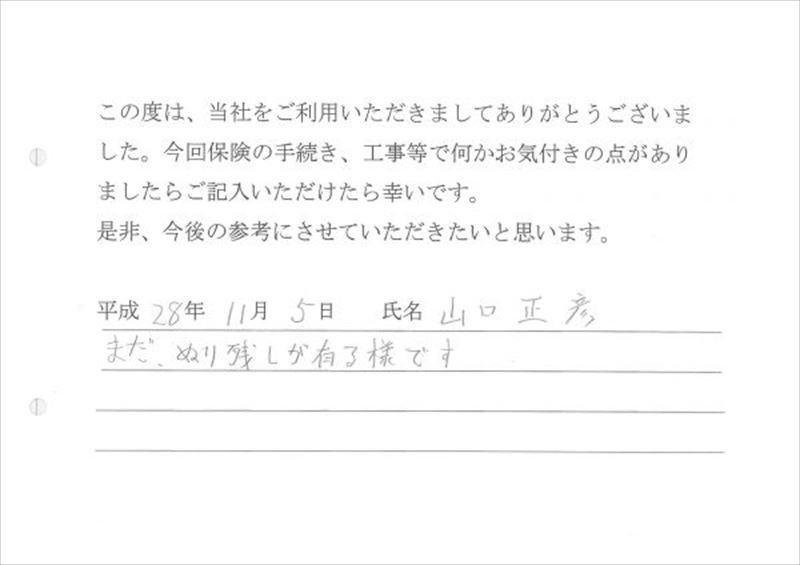 この度は、当社をご利用いただきましてありがとうございま
した。今回保険の手続き、工事等で何かお気付きの点があり
ましたらご記入いただけたら幸いです。
是非、今後の参考にさせていただきたいと思います。
平成 28年 11月 5日 氏名 山口正彦
まだ、ぬり残しが有る様です